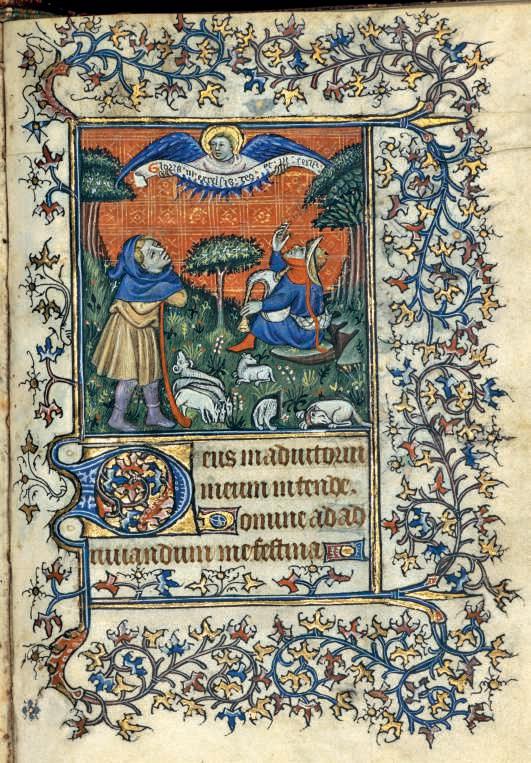 Gloria in excelsis deo et in terra
Deus in adiutorium
meum intende.
Domine ad ad
iuuandum me festina